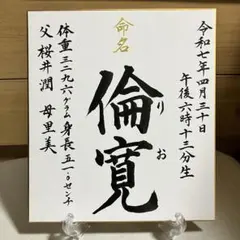 命名
令和七年四月三十日
午後六時十三分生
倫寛
りお
体重三二九六グラム身長五一.0センチ
父桜井潤 母里美